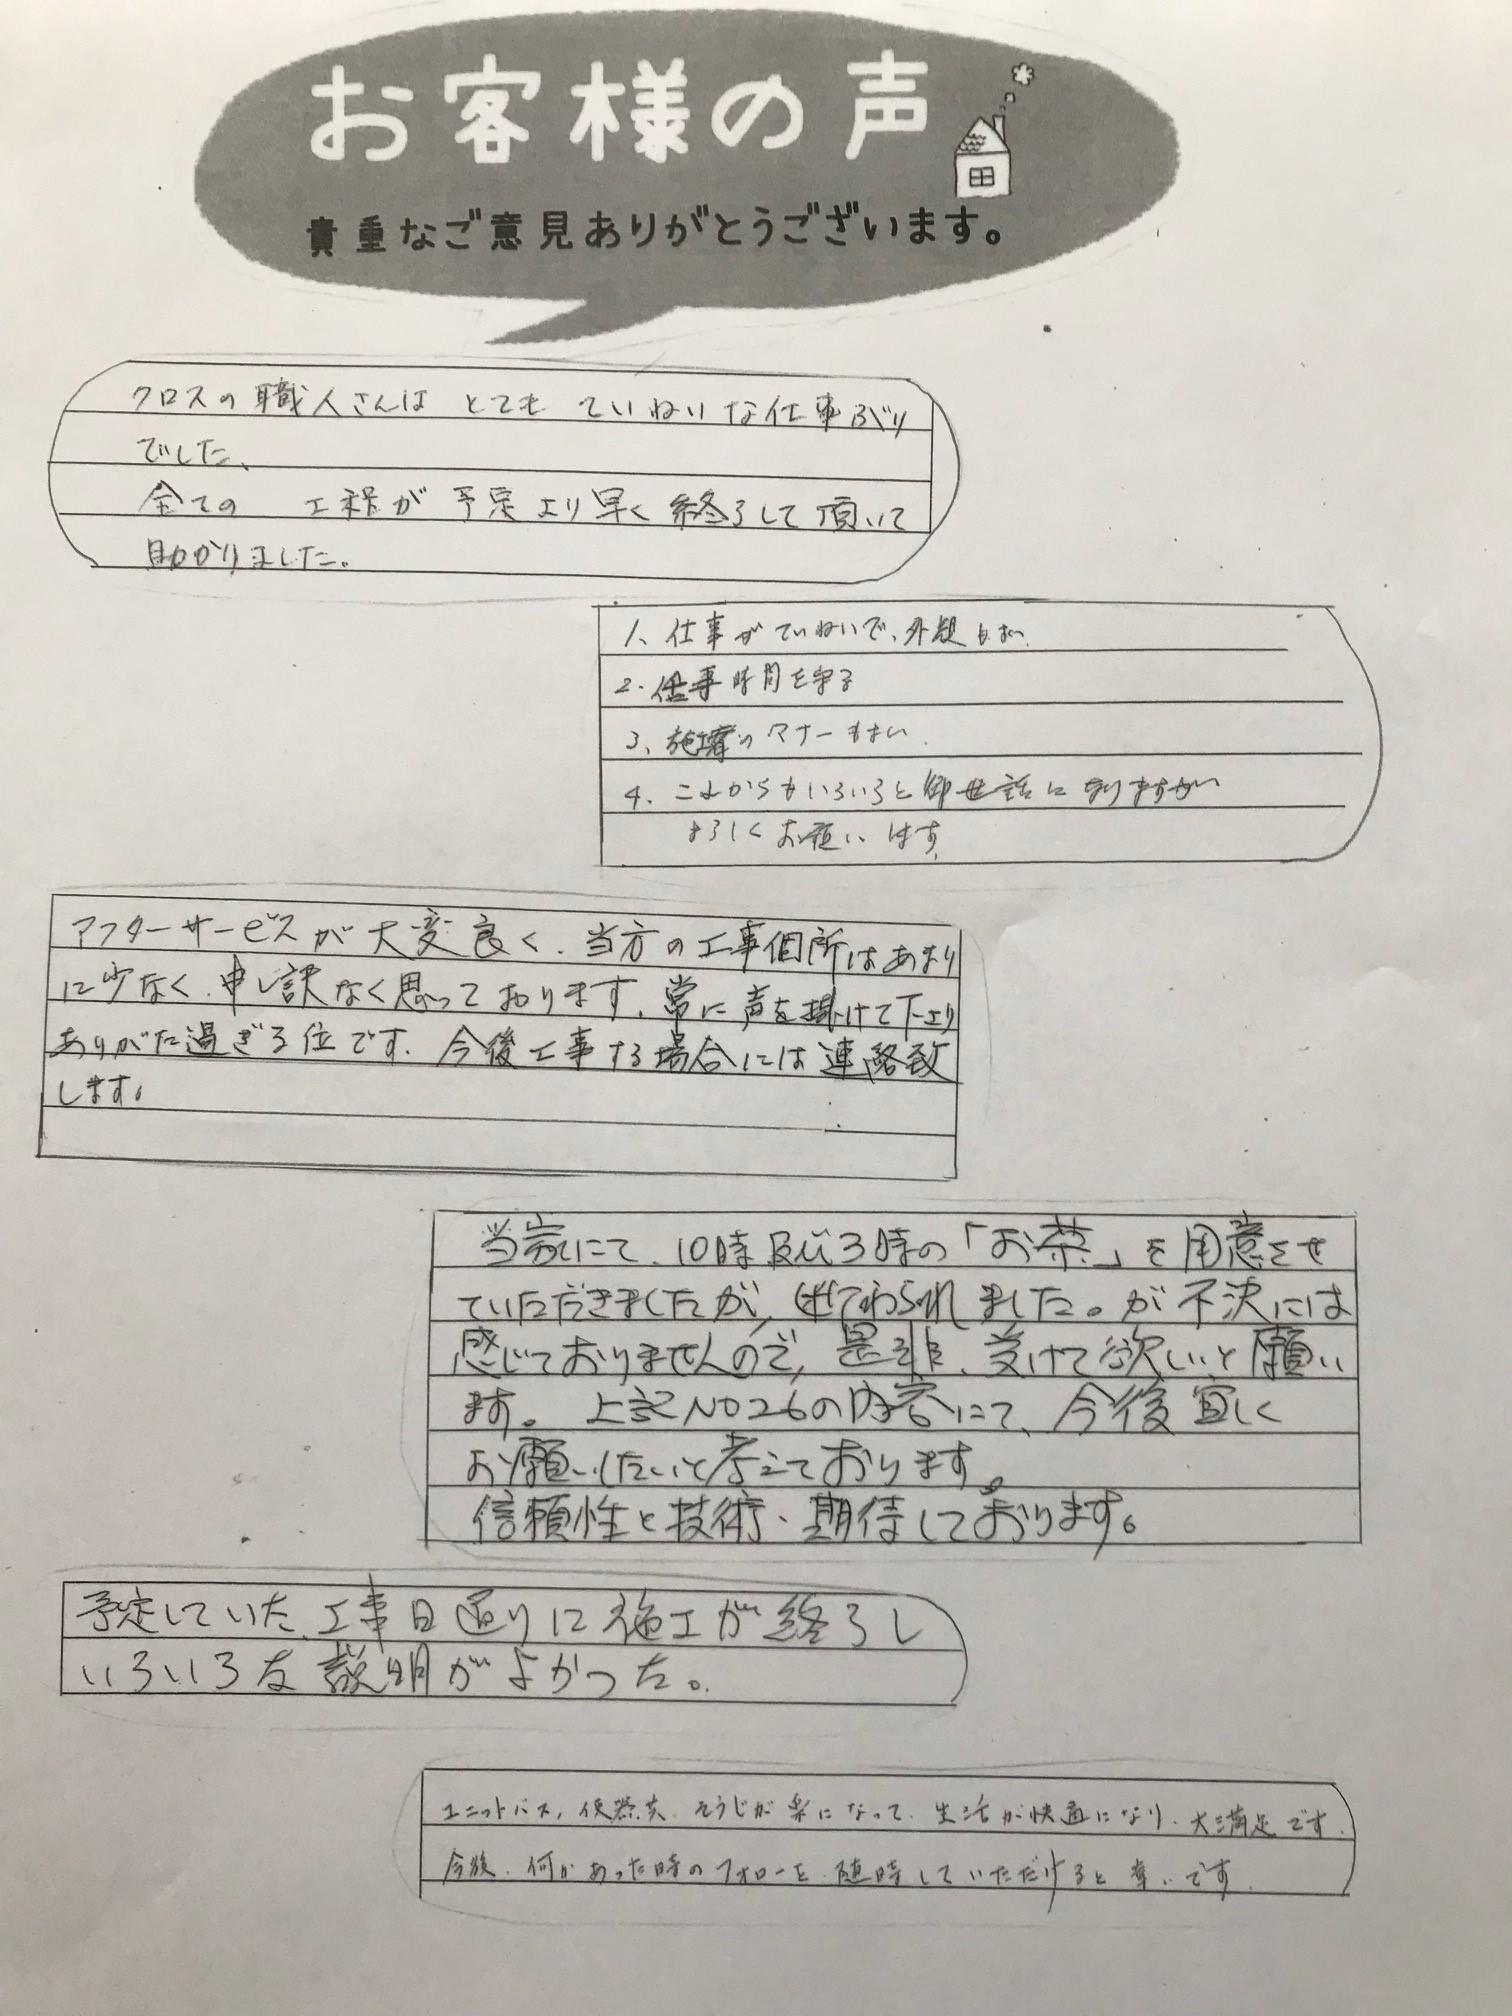 お客様の声
貴重なご意見ありがとうございます。
クロスの職人さんは とても ていねいな仕事ぶり
でした、
全ての 工程が予定より早く終了して頂いて
助かりました。
1、仕事がていねいで、外観もよい
2. 仕事時間を守る
3、のマナーもよい
4. これからもいろいろと御世話になりますが
よろしくお願いします
アフターサービスが大変良く、当方の工事個所はあまり
に少なく、申し訳なく思っております、常に声を掛けて下より
ありがた過ぎる位です、今後工事する場合には連絡致
します。
当家にて、10時及び3時の「お茶」を用意させ
ていただきましたが、ました。が不決には
感じておりませんので、是非、受けて欲しいと願い
ます。上記NO26の内容にて、今後宜しく
お願いしたいと考えております。
信頼性と技術、期待しております。
予定していた、工事日通りに施工が終了し
いろいろな説明がよかった。
ユニットバス、便器共、そうじが楽になって、生活が快適になり、大満足です。
今後、何かあった時のフォローを、随時していただけると幸いです。